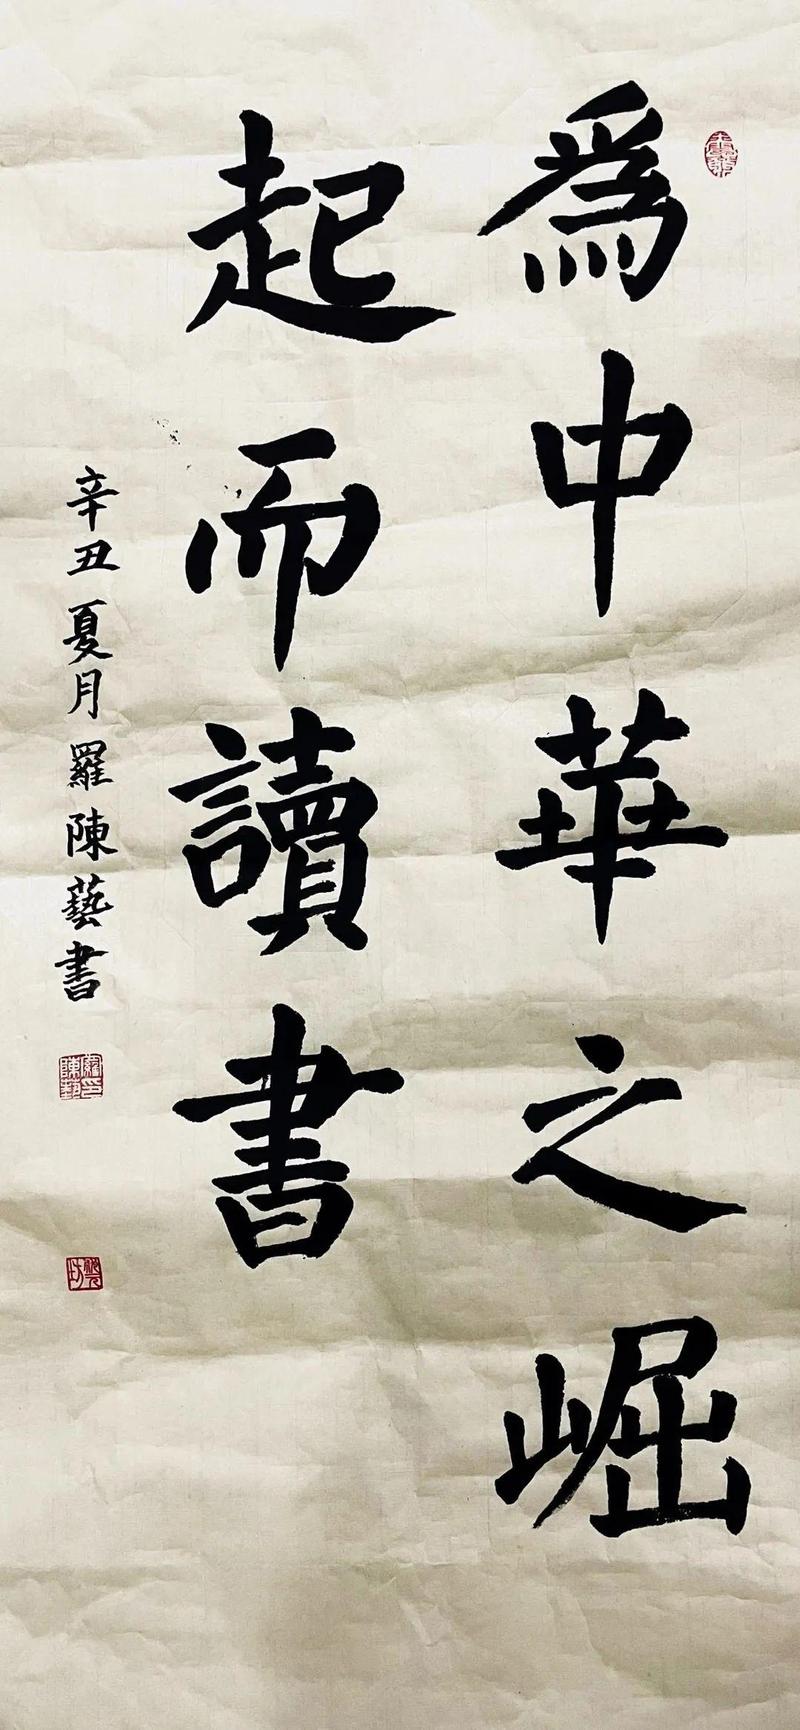 為中華之崛
起而讀書
辛丑夏月羅陳藝書